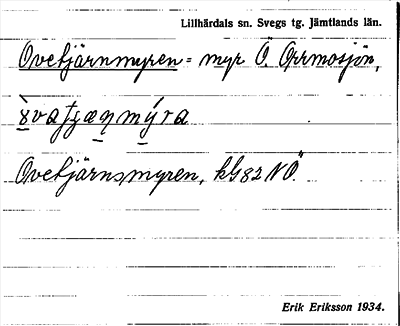 Lillhärdals sn. Svegs tg. Jämtlands län.
Ovetjärnmyren = myr Ö. Orrmosjön,
Ovetjärnsmyren, kG82NÖ.
Erik Eriksson 1934.